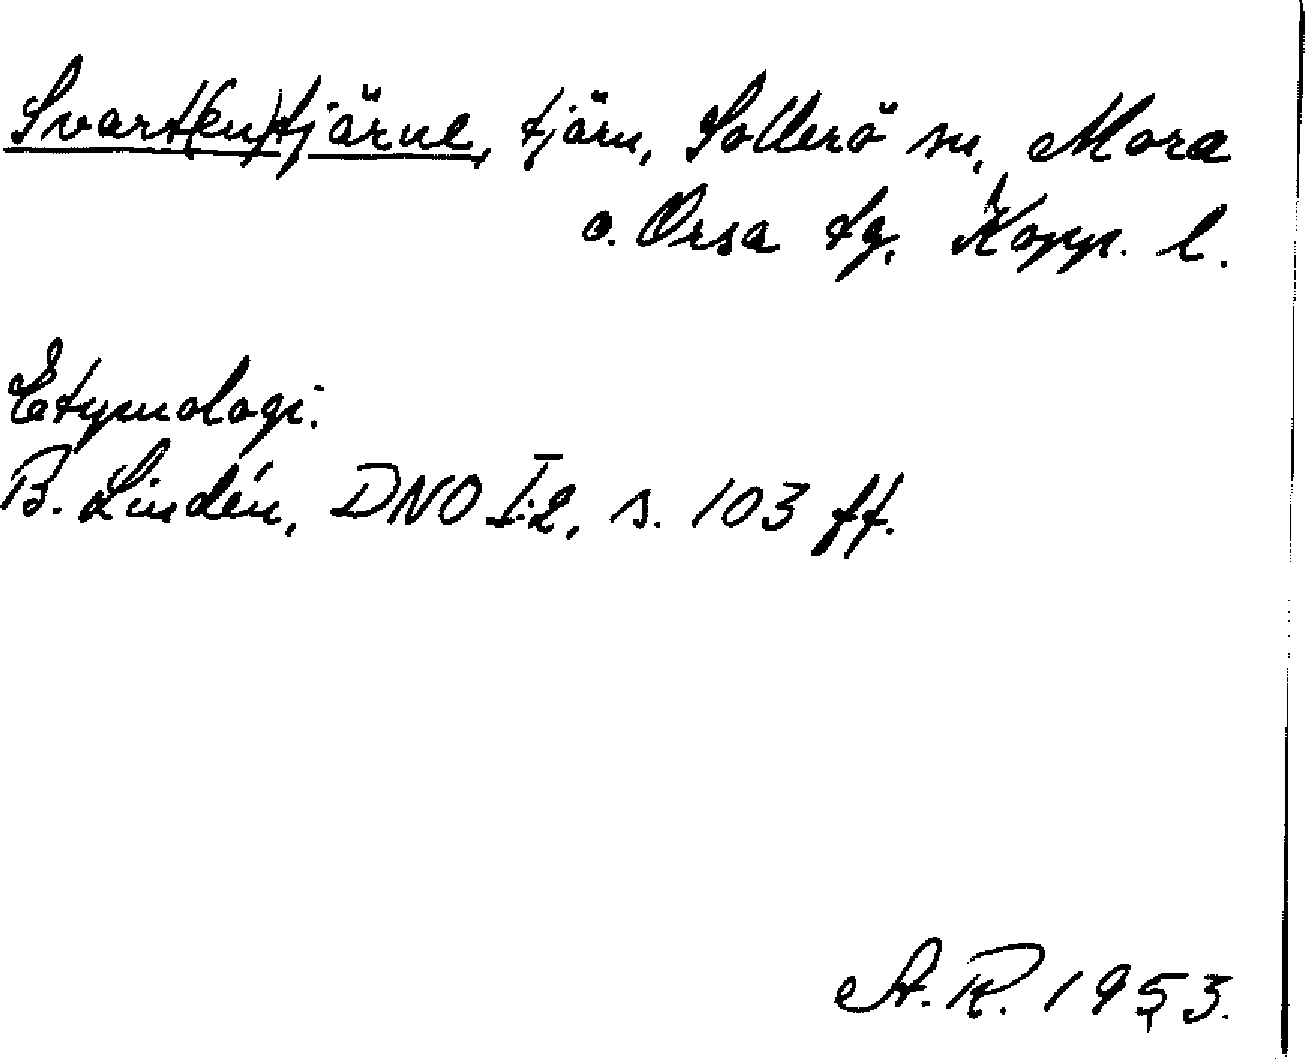 Svart(en)tjärne, tjärn, Sollerö sn, Mora
o. Orsa tg, Kopp. l.
Etymologi.
B. Lindén, DNO I:2, s. 103 ff.
A. R. 1953.